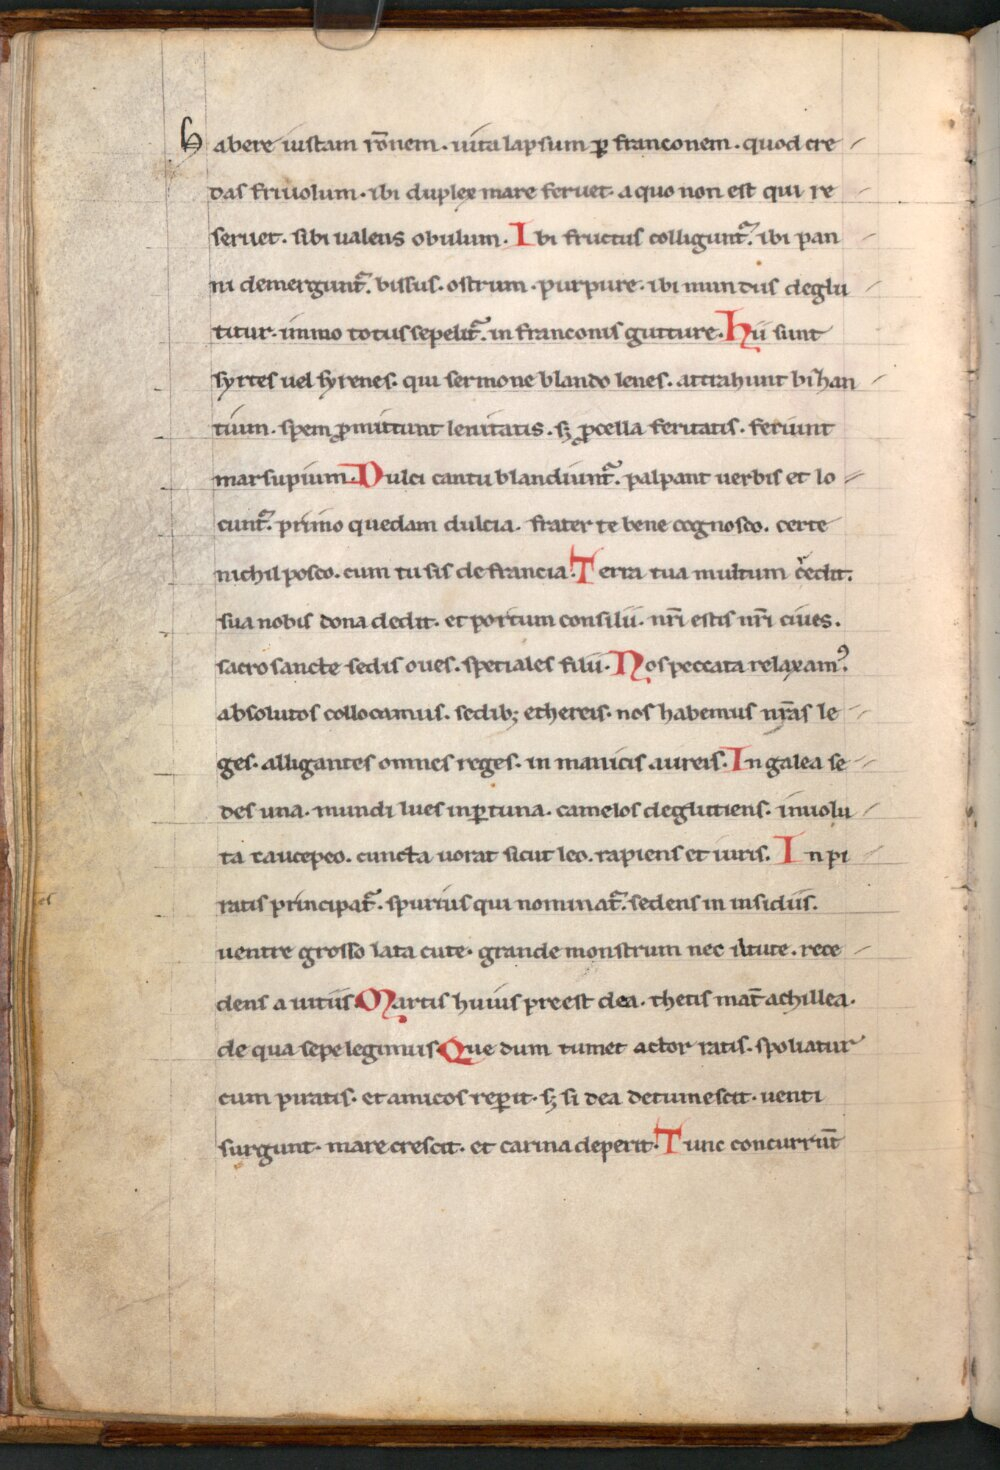 Habere iustam rōnem. uita lapsum ꝑ franconem. quod cre-
das friuolum. ibi duplex mare feruet. a quo non est qui re-
seruet. sibi ualens obulum. Ibi fructus colligunt᷑. ibi pan-
ni demergunt᷑. bissus. ostrum. purpure. ibi mundus deglu-
titur. immo totus sepelit᷑. in franconis gutture. Hii sunt
syrtes uel syrenes. qui sermone blando lenes. attrahunt bihan-
tium. spem ꝓmittunt lenitatis. sꝫ ꝓcella feritatis. feriunt
marsupium. Dulci cantu blandiunt᷑. palpant uerbis et lo-
cunt᷑. primo quedam dulcia. frater te bene cognosco. certe
nichil posco. cum tu sis de francia. Terra tua multum c̄edit.
sua nobis dona dedit. et portum consilii. nr̄i estis nr̄i ciues.
sacrosancte sedis oues. speciales filii. Nos peccata relaxamꝰ.
absolutos collocamus. sedibꝫ ethereis. nos habemus nr̄as le-
ges. alligantes omnes reges. in manicis aureis. In galea se-
des una. mundi lues inꝑtuna. camelos deglutiens. inuolu-
ta caucepeo. cuncta uorat sicut leo. rapiens et iuris. In pi-
ratis principat᷑. spurius qui nominat᷑. sedens in insidiis.
uentre grosso lata cute. grande monstrum nec uͥtute. rece-
dens a uitiis. Martis huius preest dea. thetis mat̄ achillea.
de qua sepe legimus. Que dum tumet actor ratis. spoliatur
cum piratis. et amicos reꝑit. sꝫ si dea detumescit. uenti
surgunt. mare crescit. et carina deperit. Tunc concurrūt